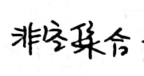 非空集合